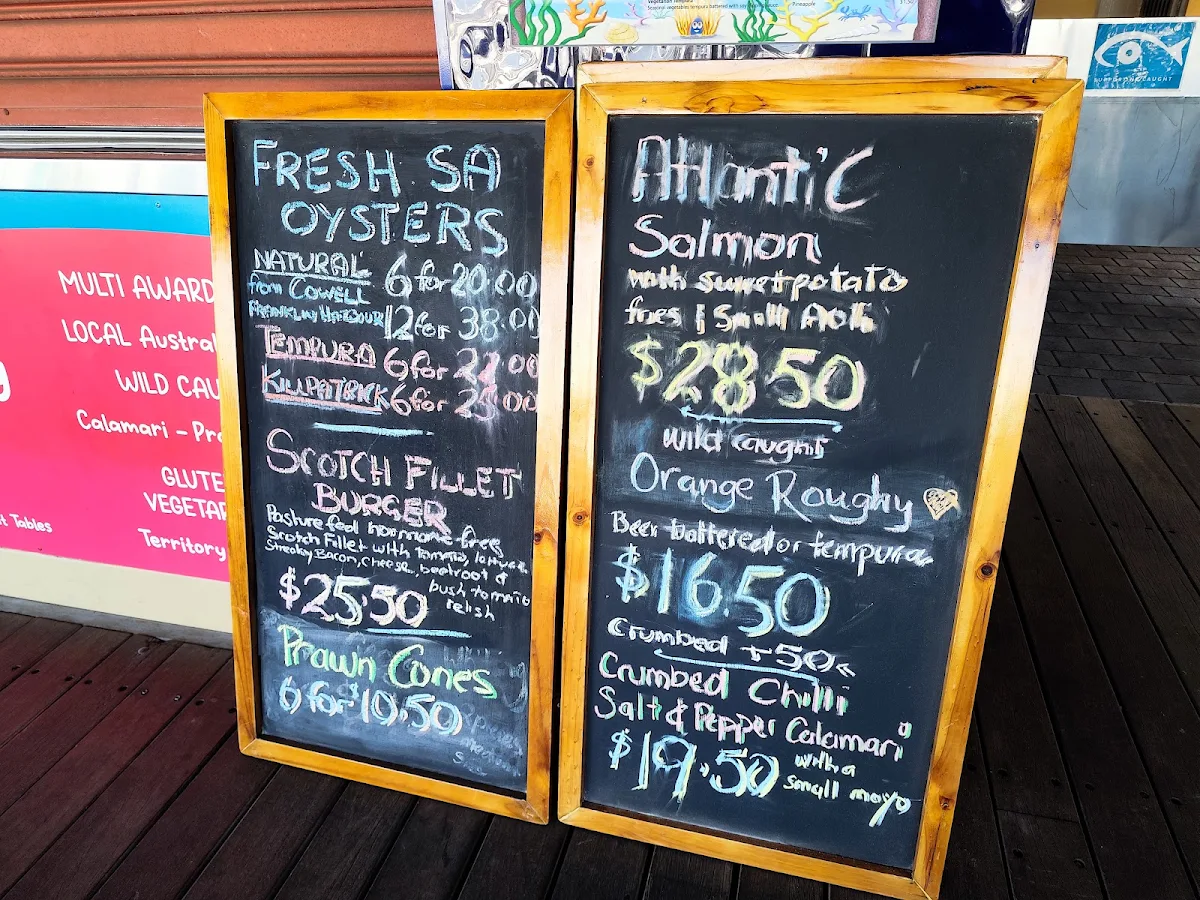 Vegetarian Tempura
Seasonal vegetables tempura battered with soy
Pineapple
MULTI AWARD
LOCAL Austral
WILD CAU
Calamari - Pr
GLUTE
VEGETAR
Tables
Territory
FRESH SA
OYSTERS
NATURAL 6 for 20.00
from COWELL
FRANKLIN HARBOUR 12 for 38.00
TEMPURA 6 for 22.00
KILLPATRICK 6 for 25.00
SCOTCH FILLET
BURGER
Pasture fed hormone free
Scotch Fillet with tomato, lettuce
Streaky Bacon, cheese, beetroot &
bush tomato
relish
$25.50
Prawn Cones
6 for $10.50
Atlantic
Salmon
with sweet potato
fries & Small Aoli
$28.50
wild caught
Orange Roughy
Beer battered or tempura
$16.50
Crumbed +50c
Crumbed Chilli
Salt & Pepper Calamari
$19.50 with a
small mayo